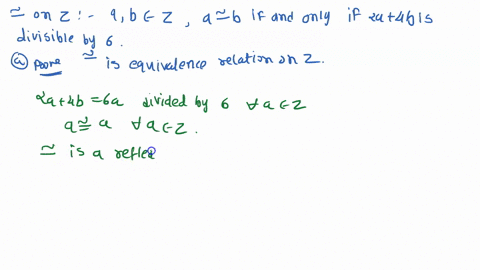 ≅ on Z :- a, b ∈ Z, a ≅ b if and only if 2a+4b is
divisible by 6.
(a) prove ≅ is equivalence relation on Z.
2a+4b = 6a divided by 6 ∀ a ∈ Z
a ≅ a ∀ a ∈ Z.
≅ is a refle